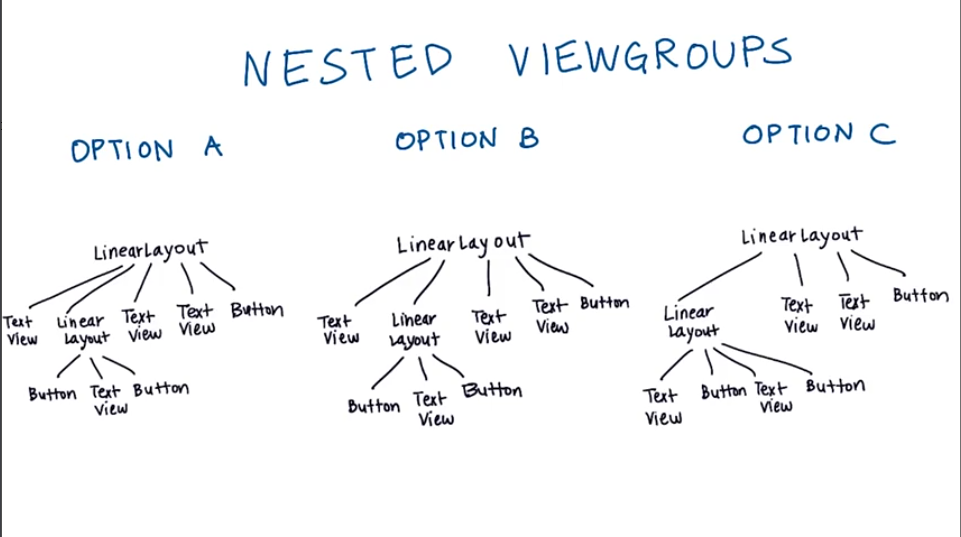 NESTED VIEWGROUPS
OPTION A
OPTION B
OPTION C
LinearLayout
Text View
Linear Layout
Text View
Text View
Button
Button
Text View
Button
LinearLayout
Text View
Linear Layout
Text View
Text View
Button
Button
Text View
Button
LinearLayout
Linear Layout
Text View
Text View
Button
Text View
Button
Text View
Button